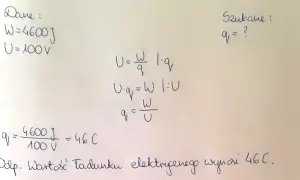 Dane:
W=4600J
U=100V
Szukane:
q=?
U=W/q |·q
U·q=W |:U
q=W/U
q=4600J/100V=46C
Odp. Wartość ładunku elektrycznego wynosi 46C.